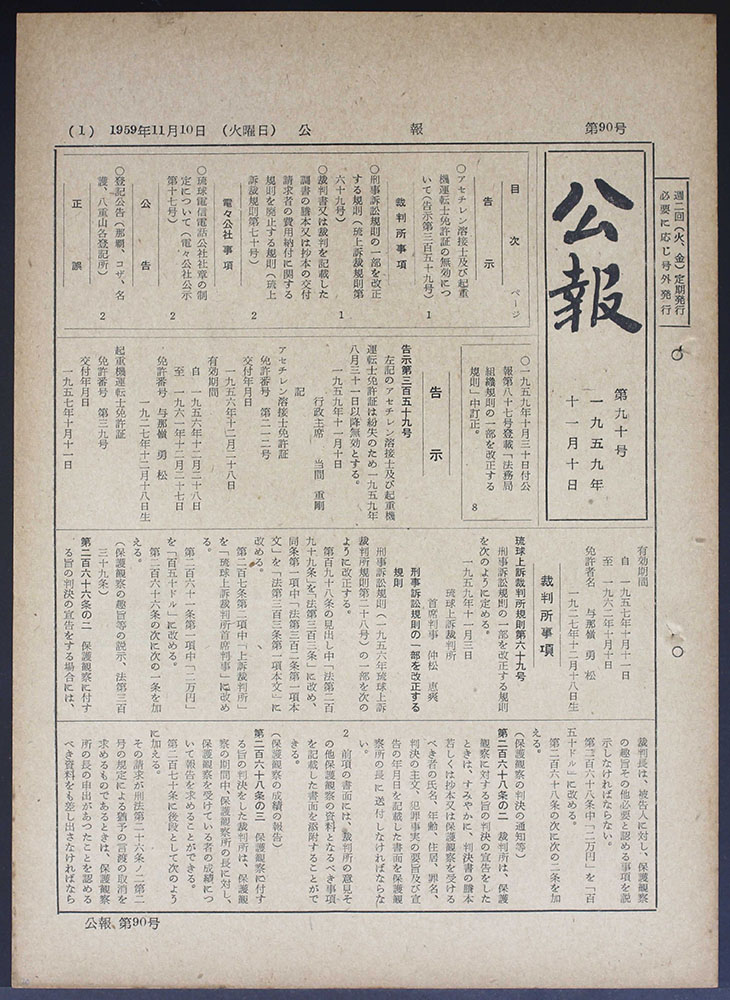 (1) 1959年11月10日 (火曜日) 公報 第90号
週二回(火、金)定期発行
必要に応じ号外発行
公報
第九十号
一九五九年
十一月十日
目次
ページ
告示
○アセチレン溶接士及び起重
機運転士免許証の無効につ
いて(告示第三百五十九号) 1
裁判所事項
刑事訴訟規則の一部を改正
する規則(琉上訴裁規則第
六十九号) 1
○裁判書又は裁判を記載した
調書の謄本又は抄本の交付
請求者の費用納付に関する
規則を廃止する規則(琉上
訴裁規則第七十号) 2
電々公社事項
○琉球電信電話公社社章の制
定について(電々公社公示
第十七号) 2
公告
○登記公告(那覇、コザ、名
護、八重山各登記所) 2
正誤
○一九五九年十月三十日付公
報第八十七号登載「法務局
組織規則の一部を改正する
規則」中訂正。 8
告示
告示第三百五十九号
左記のアセチレン溶接士及び起重機
運転士免許証は紛失のため一九五九年
八月三十一日以降無効とする。
一九五九年十一月十日
行政主席 当間重剛
記
アセチレン溶接士免許証
免許番号 第二一二号
交付年月日
一九五六年十二月二十八日
有効期間
自 一九五六年十二月二十八日
至 一九六一年十二月二十七日
免許者名 与那嶺勇松
一九二七年十二月十八日生
起重機運転士免許証
免許番号 第三九号
交付年月日
一九五七年十月十一日
有効期間
自 一九五七年十月十一日
至 一九六二年十月十日
免許者名 与那嶺勇松
一九二七年十二月十八日生
裁判所事項
琉球上訴裁判所規則第六十九号
刑事訴訟規則の一部を改正する規則
を次のように定める。
一九五九年十一月三日
琉球上訴裁判所
首席判事 仲松恵爽
刑事訴訟規則の一部を改正する
規則
刑事訴訟規則(一九五六年琉球上訴
裁判所規則第二十八号)の一部を次の
ように改正する。
第百九十八条の見出し中「法第二百
九十九条」を「法第三百三条」に改め、
同条第一項中「法第三百二条第一項本
文」を「法第三百三条第一項本文」に
改める。
第二百七条第二項中「上訴裁判所」
を「琉球上訴裁判所首席判事」に改め
る。
第二百六十一条第一項中「二万円」
を「百五十ドル」に改める。
第二百六十六条の次に次の一条を加
える。
(保護観察の趣旨等の説示、法第三百
三十九条)
第二百六十六条の二 保護観察に付す
る旨の判決の宣告をする場合には、
裁判長は、被告人に対し、保護観察
の趣旨その他必要と認める事項を説
示しなければならない。
第二百六十八条中「二万円」を「百
五十ドル」に改める。
第二百六十八条の次に次の二条を加
える。
(保護観察の判決の通知等)
第二百六十八条の二 裁判所は、保護
観察に対する旨の判決の宣告をした
ときは、すみやかに、判決書の謄本
若しくは抄本又は保護観察を受ける
べき者の氏名、年齢、住居、罪名、
判決の主文、犯罪事実の要旨及び宣
告の年月日を記載した書面を保護観
察所の長に送付しなければならな
い。
2 前項の書面には、裁判所の意見そ
の他保護観察の資料となるべき事項
を記載した書面を添附することがで
きる。
(保護観察の成績の報告)
第二百六十八条の三 保護観察に付す
る旨の判決をした裁判所は、保護観
察の期間中、保護観察所の長に対し、
保護観察を受けている者の成績につ
いて報告を求めることができる。
第二百七十条に後段として次のよう
に加える。
その請求が刑法第二十六条ノ二第二
号の規定による猶予の言渡の取消を
求めるものであるときは、保護観察
所の長の申出があつたことを認める
べき資料をも差し出さなければなら
公報、第90号